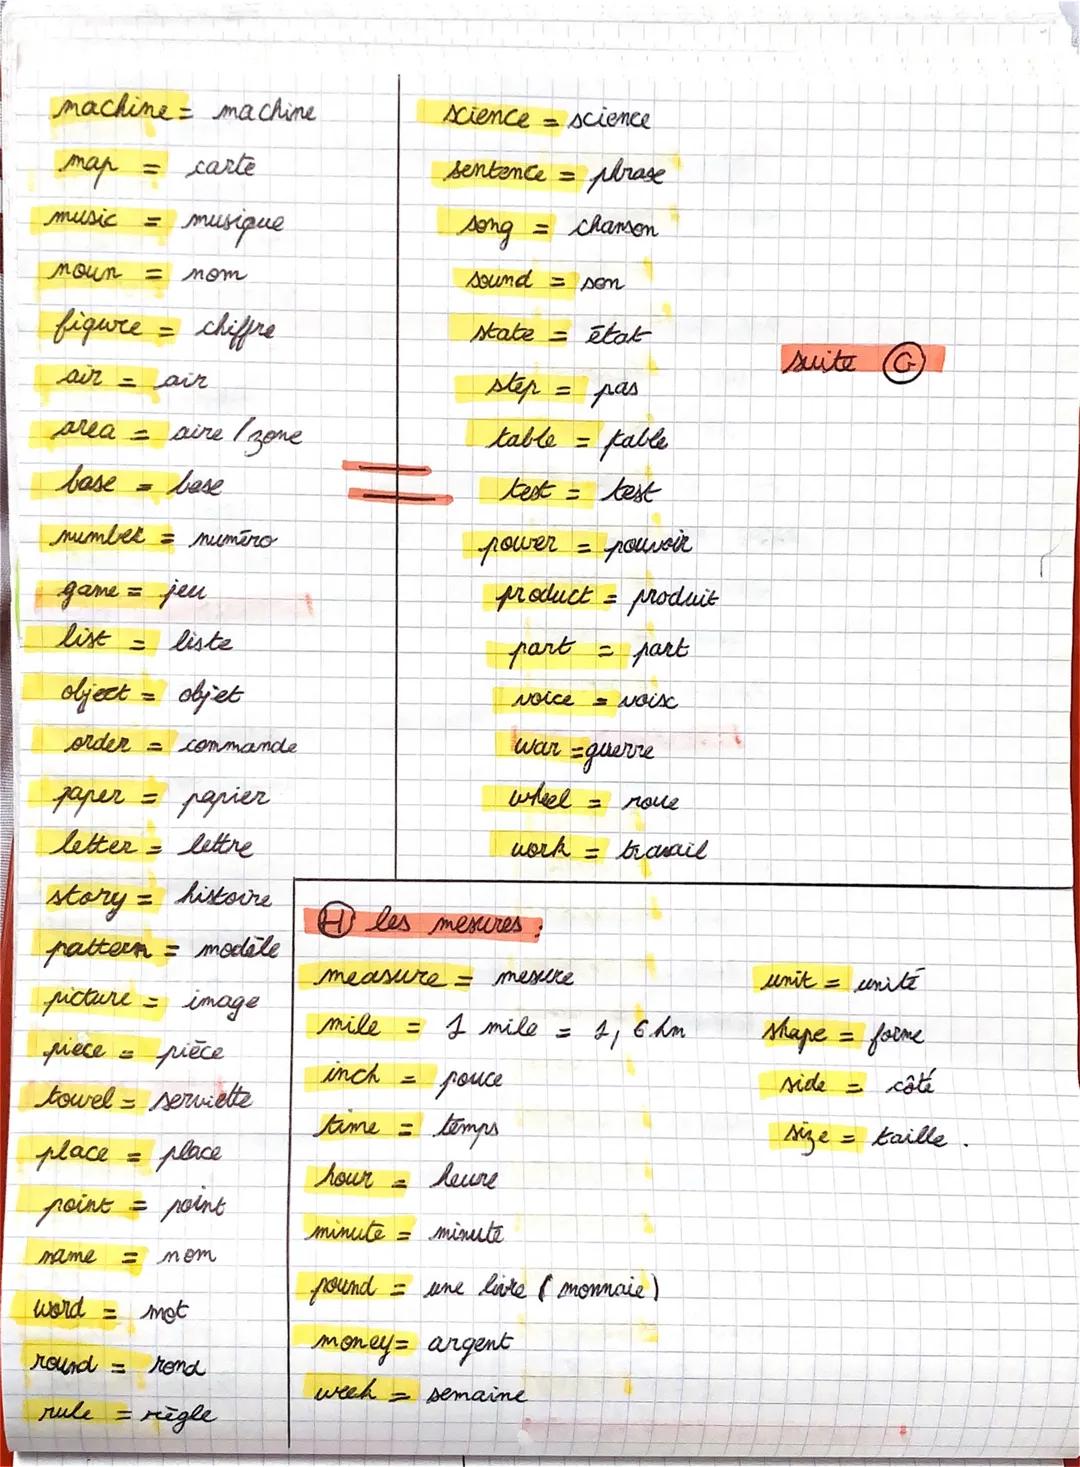 machine = machine
map = carte
music = musique
noun = nom
figure = chiffre
air = air
area = aire / zone
base = base
number = numéro
game = jeu
list = liste
object = objet
order = commande
paper = papier
letter = lettre
story = histoire
pattern = modèle
picture = image
piece = pièce
towel = serviette
place = place
point = point
name = nom
word = mot
round = rond
rule = règle
science = science
sentence = phrase
song = chanson
sound = son
state = état
step = pas
table = table
test = test
power = pouvoir
product = produit
part = part
voice = voix
war = guerre
wheel = roue
work = travail
suite G
H les mesures :
measure = mesure
mile = 1 mile = 1,6 km
inch = pouce
time = temps
hour = heure
minute = minute
pound = une livre (monnaie)
money = argent
week = semaine
unit = unité
shape = forme
side = côté
size = taille.